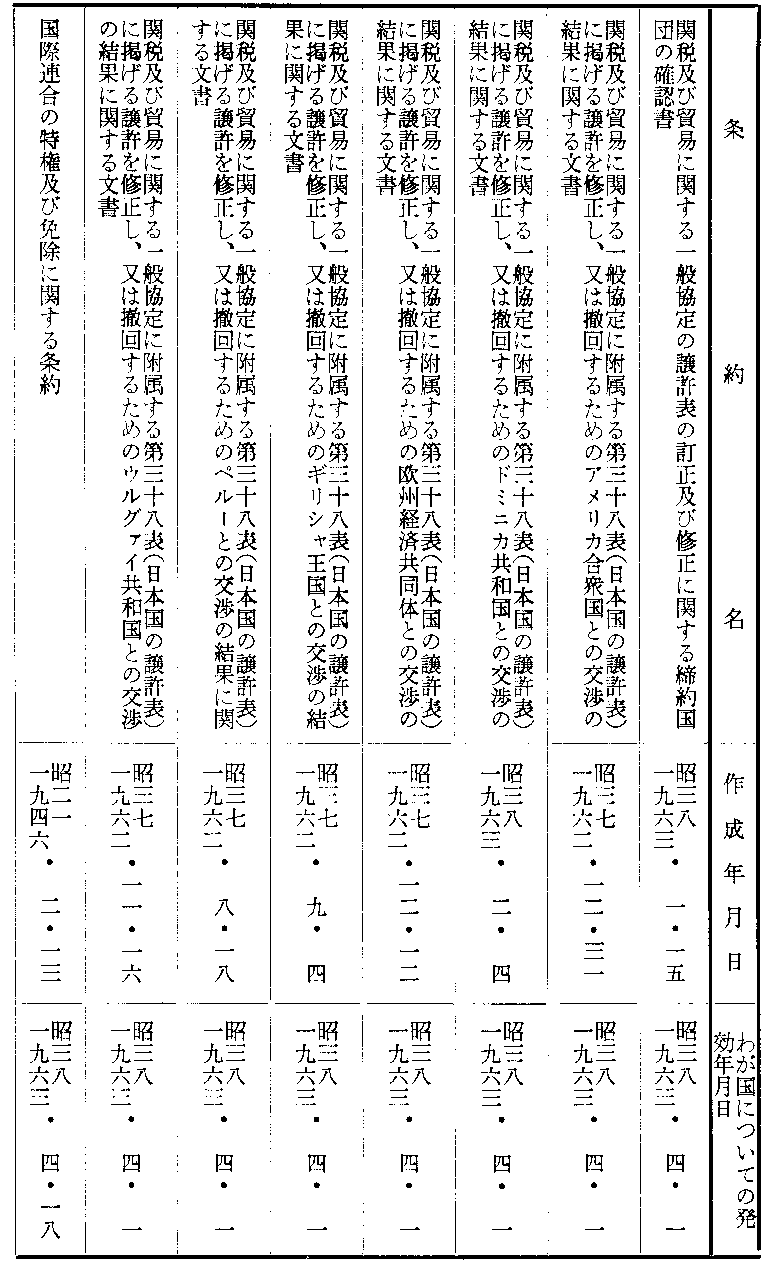 条約名
作成年月日
わが国についての発
効年月日
関税及び貿易に関する一般協定の譲許表の訂正及び修正に関する締約国
団の確認書
昭三八
一九六三・一・一五
昭三八
一九六三・四・一
関税及び貿易に関する一般協定に附属する第三十八表(日本国の譲許表)
に掲げる譲許を修正し、又は撤回するためのアメリカ合衆国との交渉の
結果に関する文書
昭三七
一九六二・一二・三一
昭三八
一九六三・四・一
関税及び貿易に関する一般協定に附属する第三十八表(日本国の譲許表)
に掲げる譲許を修正し、又は撤回するためのドミニカ共和国との交渉の
結果に関する文書
昭三八
一九六三・二・四
昭三八
一九六三・四・一
関税及び貿易に関する一般協定に附属する第三十八表(日本国の譲許表)
に掲げる譲許を修正し、又は撤回するための欧州経済共同体との交渉の
結果に関する文書
昭三七
一九六二・一二・一二
昭三八
一九六三・四・一
関税及び貿易に関する一般協定に附属する第三十八表(日本国の譲許表)
に掲げる譲許を修正し、又は撤回するためのギリシャ王国との交渉の結
果に関する文書
昭三七
一九六二・九・四
昭三八
一九六三・四・一
関税及び貿易に関する一般協定に附属する第三十八表(日本国の譲許表)
に掲げる譲許を修正し、又は撤回するためのペルーとの交渉の結果に関
する文書
昭三七
一九六二・八・一八
昭三八
一九六三・四・一
関税及び貿易に関する一般協定に附属する第三十八表(日本国の譲許表)
に掲げる譲許を修正し、又は撤回するためのウルグァイ共和国との交渉
の結果に関する文書
昭三七
一九六二・一一・一六
昭三八
一九六三・四・一
国際連合の特権及び免除に関する条約
昭二一
一九四六・二・一三
昭三八
一九六三・四・一八